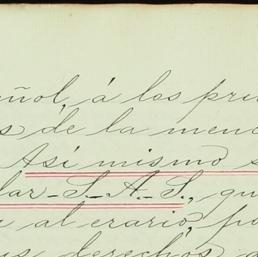 añol, á los pri
s de la menc
Así mismo s
lar S. A. S., qu
al erario, po
us derechos a